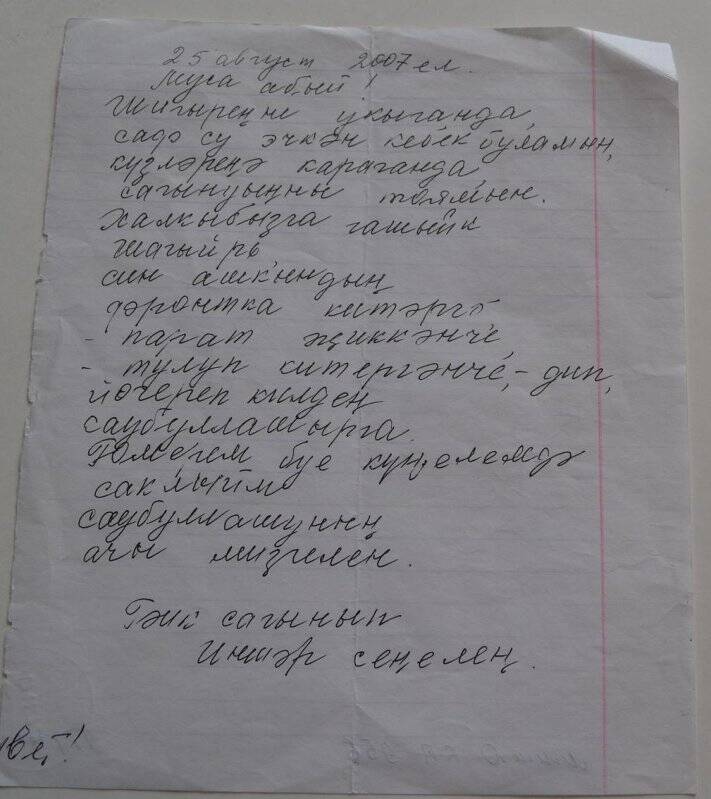 25 август 2007 ел.
Муса абый!
Шигыреңне укыганда,
саф су эчкән кебек буламын,
күзләреңә караганда
сагынуыңны тоямын.
Халкыбызга гашыйк
шагыйрь
син ашкындың
фронтка китәргә
- парат җиккәнче,
- тулуп китергәнче, - дип,
йөгереп килдең
саубуллашырга.
Гомегем буе күңелемдә
саклыйм
саубуллашуның
ачы мизгелен.
Гәик сагынып
Иншәр сеңелең.
вет!